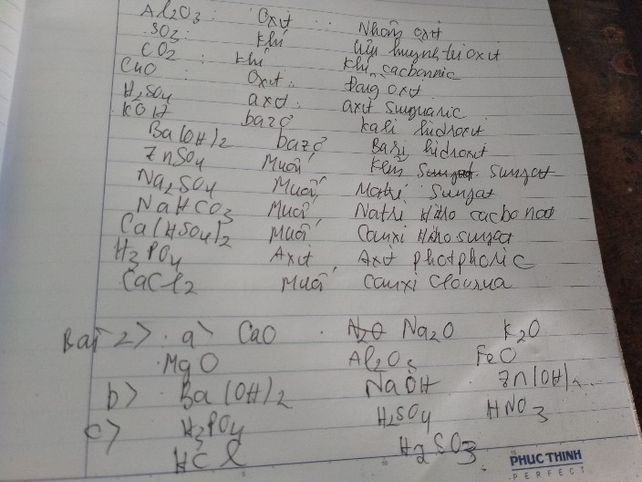 Al2O3: Oxit Nhôm oxit
SO3: Khí lưu huỳnh tri oxit
CO2: Khí Khí cacbonnic
CuO Oxit: Đồng oxit
H2SO4 axit axit sunfuaric
KOH bazơ kali hidroxit
Ba(OH)2 bazơ Bari hidroxit
ZnSO4 Muối Kẽm sunfat
Na2SO4 Muối Natri sunfat
NaHCO3 Muối Natri Hiđro cacbonat
Ca(HSO4)2 Muối Canxi Hiđro sunfat
H3PO4 Axit Axit photphoric
CaCl2 Muối Canxi Clourua
Bài 2> a> CaO Na2O K2O
MgO Al2O3 FeO
b> Ba(OH)2 NaOH Zn(OH)
c> H3PO4 H2SO4 HNO3
HCl H2SO3
PHUC THINH
PERFECT